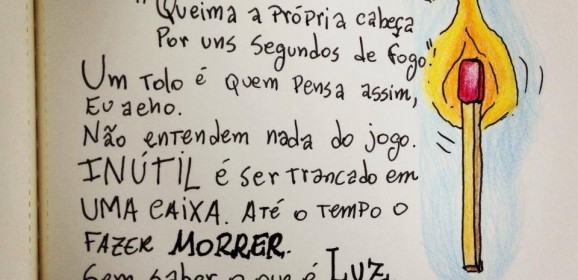 "Queima a própria cabeça
Por uns segundos de fogo."
Um tolo é quem pensa assim,
Eu acho.
Não entendem nada do jogo.
INÚTIL é ser trancado em
UMA CAIXA. Até o tempo o
FAZER MORRER.
Sem saber o que é LUZ